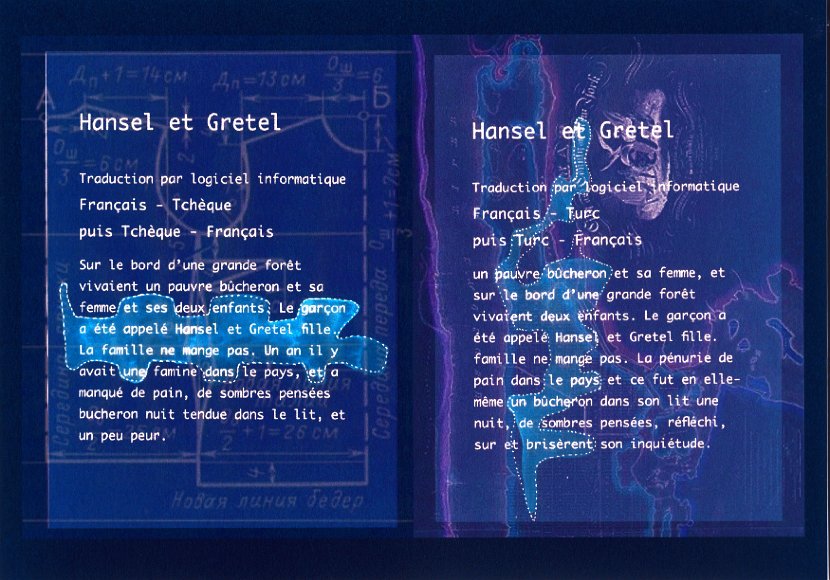 Hansel et Gretel
Traduction par logiciel informatique
Français - Tchèque
puis Tchèque - Français
Sur le bord d'une grande forêt
vivaient un pauvre bûcheron et sa
femme et ses deux enfants. Le garçon
a été appelé Hansel et Gretel fille.
La famille ne mange pas. Un an il y
avait une famine dans le pays, et a
manqué de pain, de sombres pensées
bucheron nuit tendue dans le lit, et
un peu peur.
Дп+1=14см
Дп=13см
Ош/3=6
А
Б
Ош/3=6см
2
Ош/3+1=7см
Середина
Середина переда
/2+1=26см
4
Новая линия бедер
Hansel et Gretel
Traduction par logiciel informatique
Français - Turc
puis Turc - Français
un pauvre bûcheron et sa femme, et
sur le bord d'une grande forêt
vivaient deux enfants. Le garçon a
été appelé Hansel et Gretel fille.
famille ne mange pas. La pénurie de
pain dans le pays et ce fut en elle-
même un bûcheron dans son lit une
nuit, de sombres pensées, réfléchi,
sur et brisèrent son inquiétude.